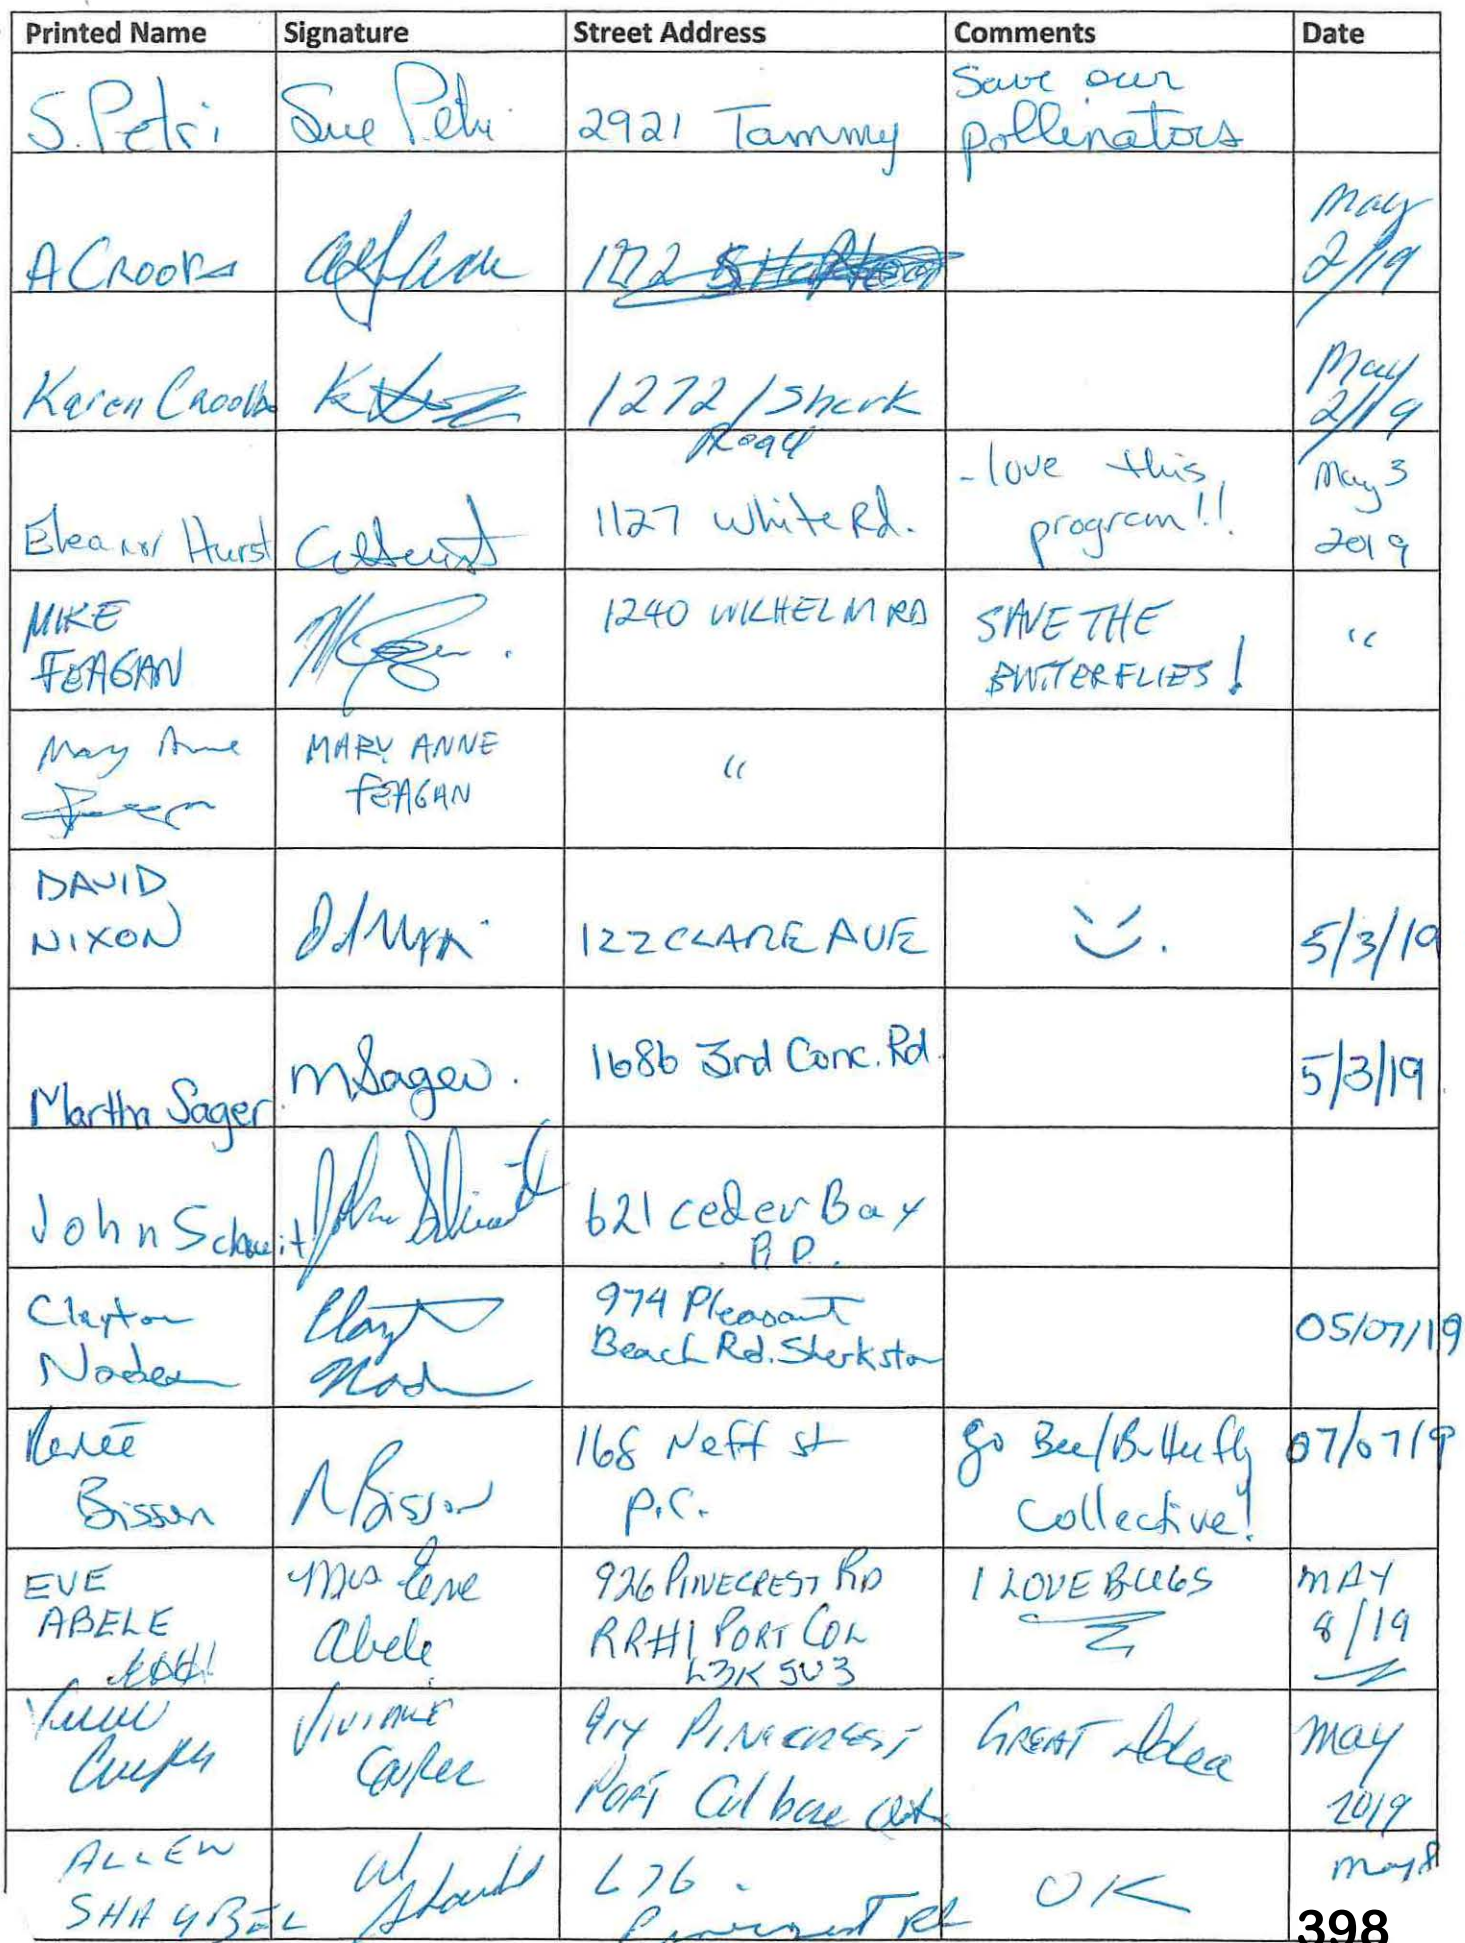 Printed Name Signature Street Address Comments Date
S. Petri Sue Petri 2921 Tammy Save our
pollinators
A Crooks 1272 May
2/19
Karen Crooks 1272 / Sherk
Road May
2/19
Eleanor Hurst 1127 White Rd. - love this
program!! May 3
2019
MIKE
FEAGAN 1240 WILHELM RD SAVE THE
BUTTERFLIES! "
Mary Anne
Feagan MARY ANNE
FEAGAN "
DAVID
NIXON 122 CLARE AVE 5/3/19
Martha Sager M Sager. 1686 3rd Conc. Rd. 5/3/19
John Schmit John 621 Ceder Bay
RD.
Clayton
Clayton 974 Pleasant
Beach Rd. Sherkston 05/07/19
Renée
Bisson R Bisson 168 Neff St
P.C. Go Bee/Butterfly
Collective! 07/07/19
EVE
ABELE Mrs Eve
Abele 926 PINECREST RD
RR#1 PORT COL
L3K 5V3 I LOVE BUGS MAY
8/19
914 PINECREST
PORT Colborne Ont GREAT Idea May
2019
ALLEN
676
Pinecrest Rd OK May 8
398